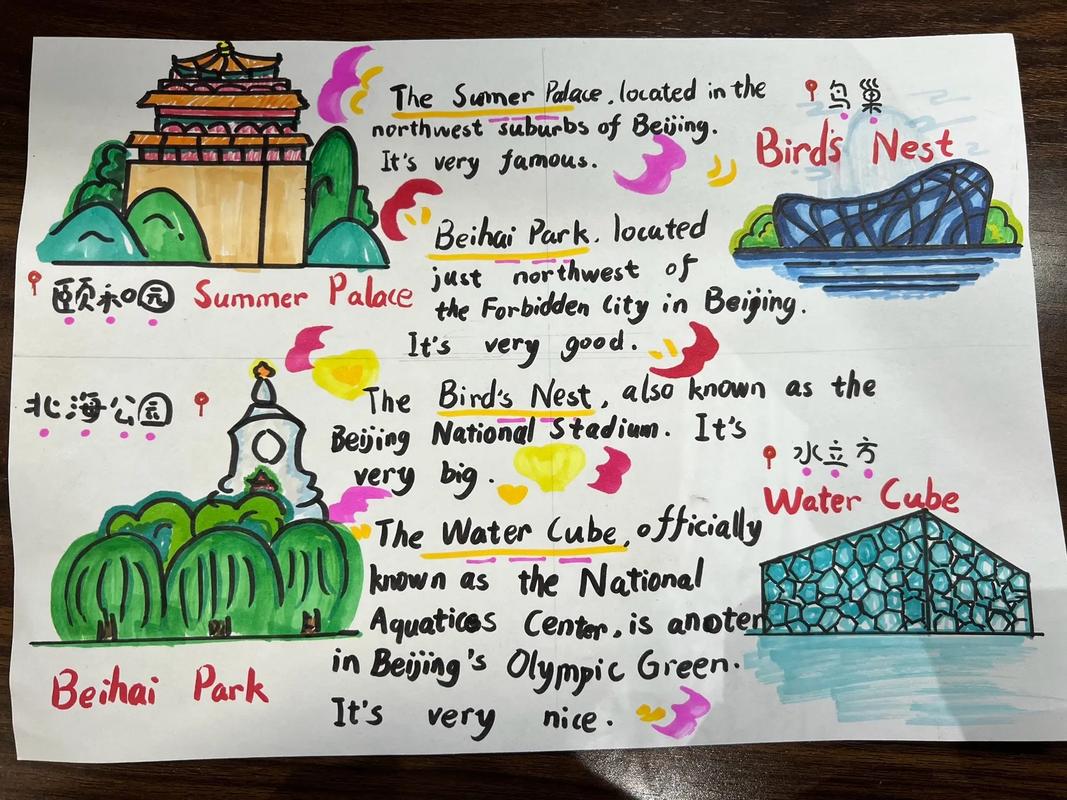 The Sumer Palace, located in the
northwest suburbs of Beijing.
It's very famous.
颐和园 Summer Palace
Beihai Park, located
just northwest of
the Forbidden City in Beijing.
It's very good.
鸟巢
Bird's Nest
北海公园
Beihai Park
The Bird's Nest, also known as the
Beijing National Stadium. It's
very big.
The Water Cube, officially
known as the National
Aquaticos Center, is anoter
in Beijing's Olympic Green.
It's very nice.
水立方
Water Cube